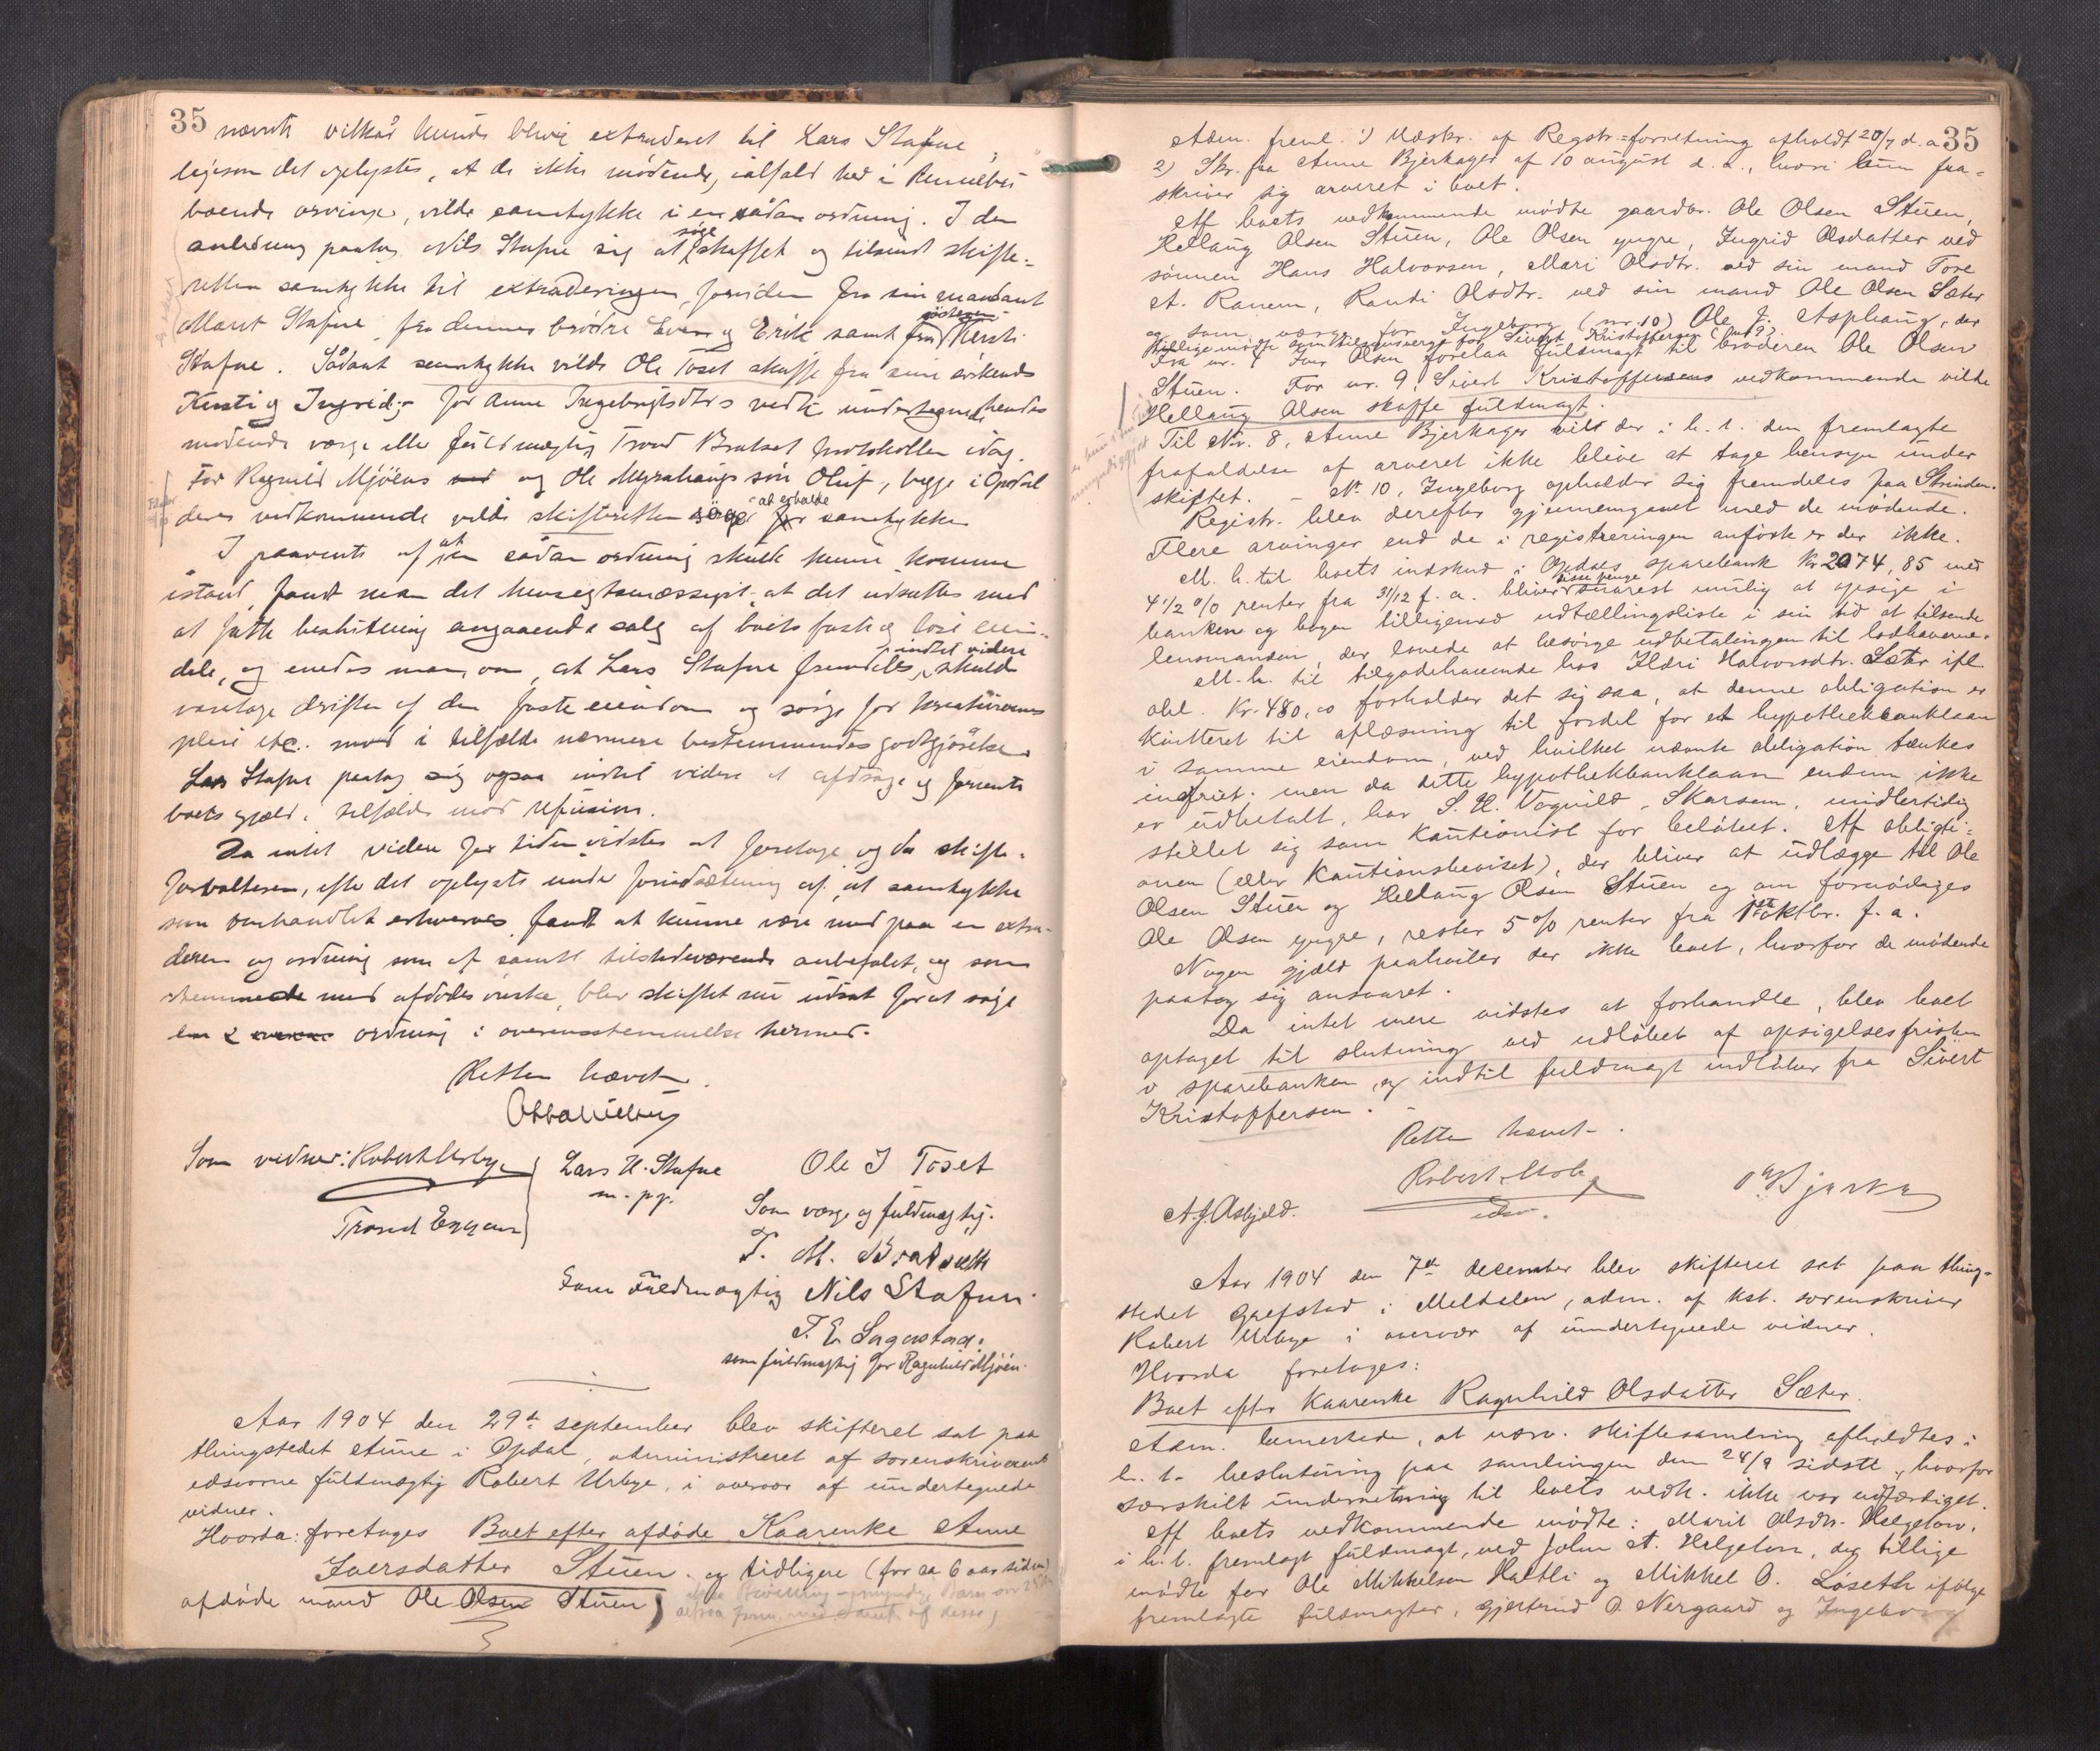 35
nævnte vilkår kunde blive extraderet til Lars Stafne,
ligesom det oplystes, at de ikke mødende, ialfald ved i Rennebu
boende arvinge, vilde samtykke i en sådan ordning. I den
anledning paatog Nils Stafne sig at søge skaffet og tilsendt skifte-
retten samtykke til extraderingen, foruden fra sin mandant
Marit Stafne, fra dennes brødre Even og Erik samt fra søsteren Kersti
Stafne. Sådant samtykke vilde Ole Toset skaffe fra sine søskende
Kersti og Ingrid; - for Anne Ingebrigtsdtrs vedk. undertegned hendes
mødende værge eller fuldmægtig Trond Bratset protokollen idag.
For Ragnild Mjöens og Ole Myrahaugs søn Oluf, begge i Opdal
deres vedkommende vilde skifteretten søge at erholde samtykke
I paavente af at en sådan ordning skulde kunne komme
istand, fandt man det hensegtsmæssigst, at det udsattes med
at fatte beslutning angaaende salg af boets faste og løse eien-
dele, og enedes man om, at Lars Stafne fremdeles indtil videre skulde
varetage driften af den faste eiendom og sørge for kreaturernes
pleie etc. mod i tilfælde nærmere bestemmendes godtgjørelse.
Lars Stafne paatog sig ogsaa indtil videre at afdrage og forrente
boets gjæld, i tilfælde mod refusion.
Da intet videre for tiden vidstes at foretage og da skifte-
forvalteren, efter det oplyste under forudsætning af, at samtykke
som omhandlet erhverves, fandt at kunne være med paa en extra-
deren og ordning som af samtl. tilstedeværende anbefalet, og som
stemmede med afdødes ønske, blev skiftet nu udsat for at søge
ordning i overensstemmelse hermed.
Retten hævet.
Som vidner: Robert Urbye
Lars H. Stafne
m. p. p.
Ole J Toset
Trond Eggan
Som værge og fuldmægtig.
T. M. Bratseth
Som Fuldmægtig Nils Stafne
T. E. Sagastad:
som fuldmægtig for Ragnhild Mjöen.
Aar 1904 den 29de september blev skifteret sat paa
thingstedet Aune i Opdal, administreret af sorenskriverens
edsvorne fuldmægtig Robert Urbye, i overvær af undertegnede
vidner.
Hvorda: foretoges Boet efter afdøde Kaarenke Anne
Iversdatter Stuen. og tidligere (for ca 6 aar siden)
afdøde mand Ole Olsen Stuen)
35
Adm. freml. 1) Udskr. af Registr.=forretning afholdt 20/7 d. a.
2) Skr. fra Anne Bjerkager af 10 august d. a., hvori hun fra-
skriver sig arveret i boet.
Aff boets vedkommende mødte gaardbr. Ole Olsen Stuen,
Hellaug Olsen Stuen, Ole Olsen yngre, Ingrid Olsdatter ved
sønnen Hans Halvorsen, Mari Olsdtr. ved sin mand Tore
A. Ranem, Randi Olsdtr. ved sin mand Ole Olsen Sæter
og som værge for Ingeborg (nr. 10) Ole J. Asphaug, der
tillige mødte som tilsynsværge for Sivert Kristoffersen (nr 9).
Fra nr. 7 Iver Olsen forelaa fuldmagt til broderen Ole Olsen
Stuen. For nr. 9, Sivert Kristoffersens vedkommende vilde
Hellaug Olsen skaffe fuldmagt.
Til Nr. 8, Anne Bjerkager vild der i h. t. den fremlagte
frafaldelse af arveret ikke blive at tage hensyn under
skiftet. - Nr. 10, Ingeborg opholder sig fremdeles paa Strinden.
Registr. blev derefter gjennemgaaet med de mødende.
Flere arvinger end de i registreringen anførte er der ikke.
M. h. til boets indskud i Opdals sparebank Kr 2074,85 med
4 1/2 % renter fra 31/12 f. a. bliver disse penge snarest mulig at opsige i
banken og bogen tilligemed udtællingsliste i sin tid at tilsende
lensmanden, der lovede at besørge udbetalingen til lodhaverne.
M. h. til tilgodehavende hos Ildri Halvorsdtr. Sæter ifl.
obl. Kr. 480,00 forholder det sig saa, at denne obligation er
kvitteret til aflæsning til fordel for et hypothekbanklaan
i samme eiendom, ved hvilket nævnte obligation tænkes
indfriet. men da dette hypothekbanklaan endnu ikke
er udbetalt, har S. H. Vognild, Skarsem, midlertidig
stillet sig som kautionist for beløbet. Af obligti-
onen (eller kautionsbeviset), der bliver at udlægge til Ole
Olsen Stuen og Hellaug Olsen Stuen og om fornødiges
Ole Olsen yngre, rester 5 % renter fra 1ste oktbr. f. a.
Nogen gjæld paahviler der ikke boet, hvorfor de mødende
paatog sig ansvaret.
Da intet mere vidstes at forhandle, blev boet
optaget til slutning ved udløbet af opsigelsesfristen
i sparebanken, og indtil fuldmagt indløber fra Sivert
Kristoffersen.
Retten hævet.
Robert Urbye
edsv.
A. J. Asbjeld.
Aar 1904 den 7de december blev skifteret sat paa thing-
stedet Grefstad i Meldalen, adm. af kst. sorenskriver
Robert Urbye i overvær af undertegnede vidner.
Hvorda foretoges:
Boet efter Kaarenke Ragnhild Olsdatter Sæter.
Adm. bemerkede, at nærv. skiftesamling afholdtes i
h. t. beslutning paa samlingen den 24/9 sidstl., hvorfor
særskilt underretning til boets vedk. ikke var udfærdiget.
Aff boets vedkommende mødte: Marit Olsdtr. Helgeton,
i h. t. fremlagt fuldmagt, ved John A. Helgeton, der tillige
mødte for Ole Mikkelsen Haltli og Mikkel O. Løseth ifølge
fremlagte fuldmagter, Gjertrud O. Nergaard og Ingeborg